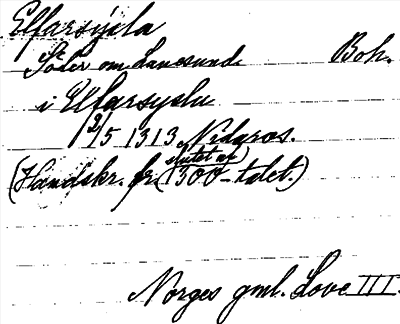 Elfarsýsla
Söder om Lanesund Boh.
i Elfarsyslu
12/5 1313, Nidaros.
(Handskr. fr. slutet av 1300-talet.)
Norges gml. Love III.